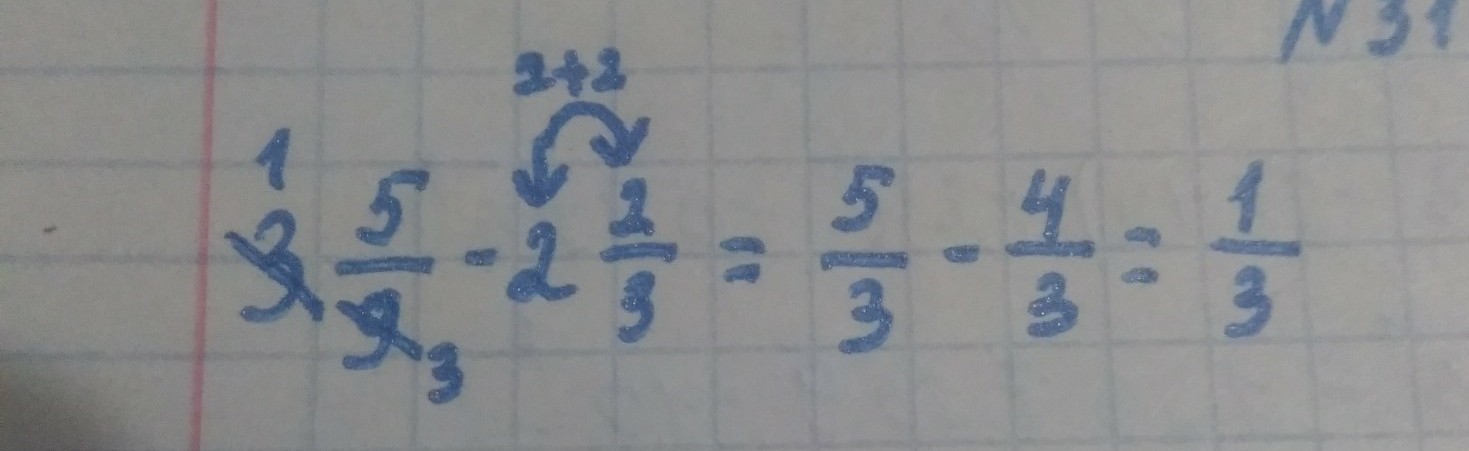 N 31
2+2
1
3 5/9 - 2 2/3 = 5/3 - 4/3 = 1/3
3